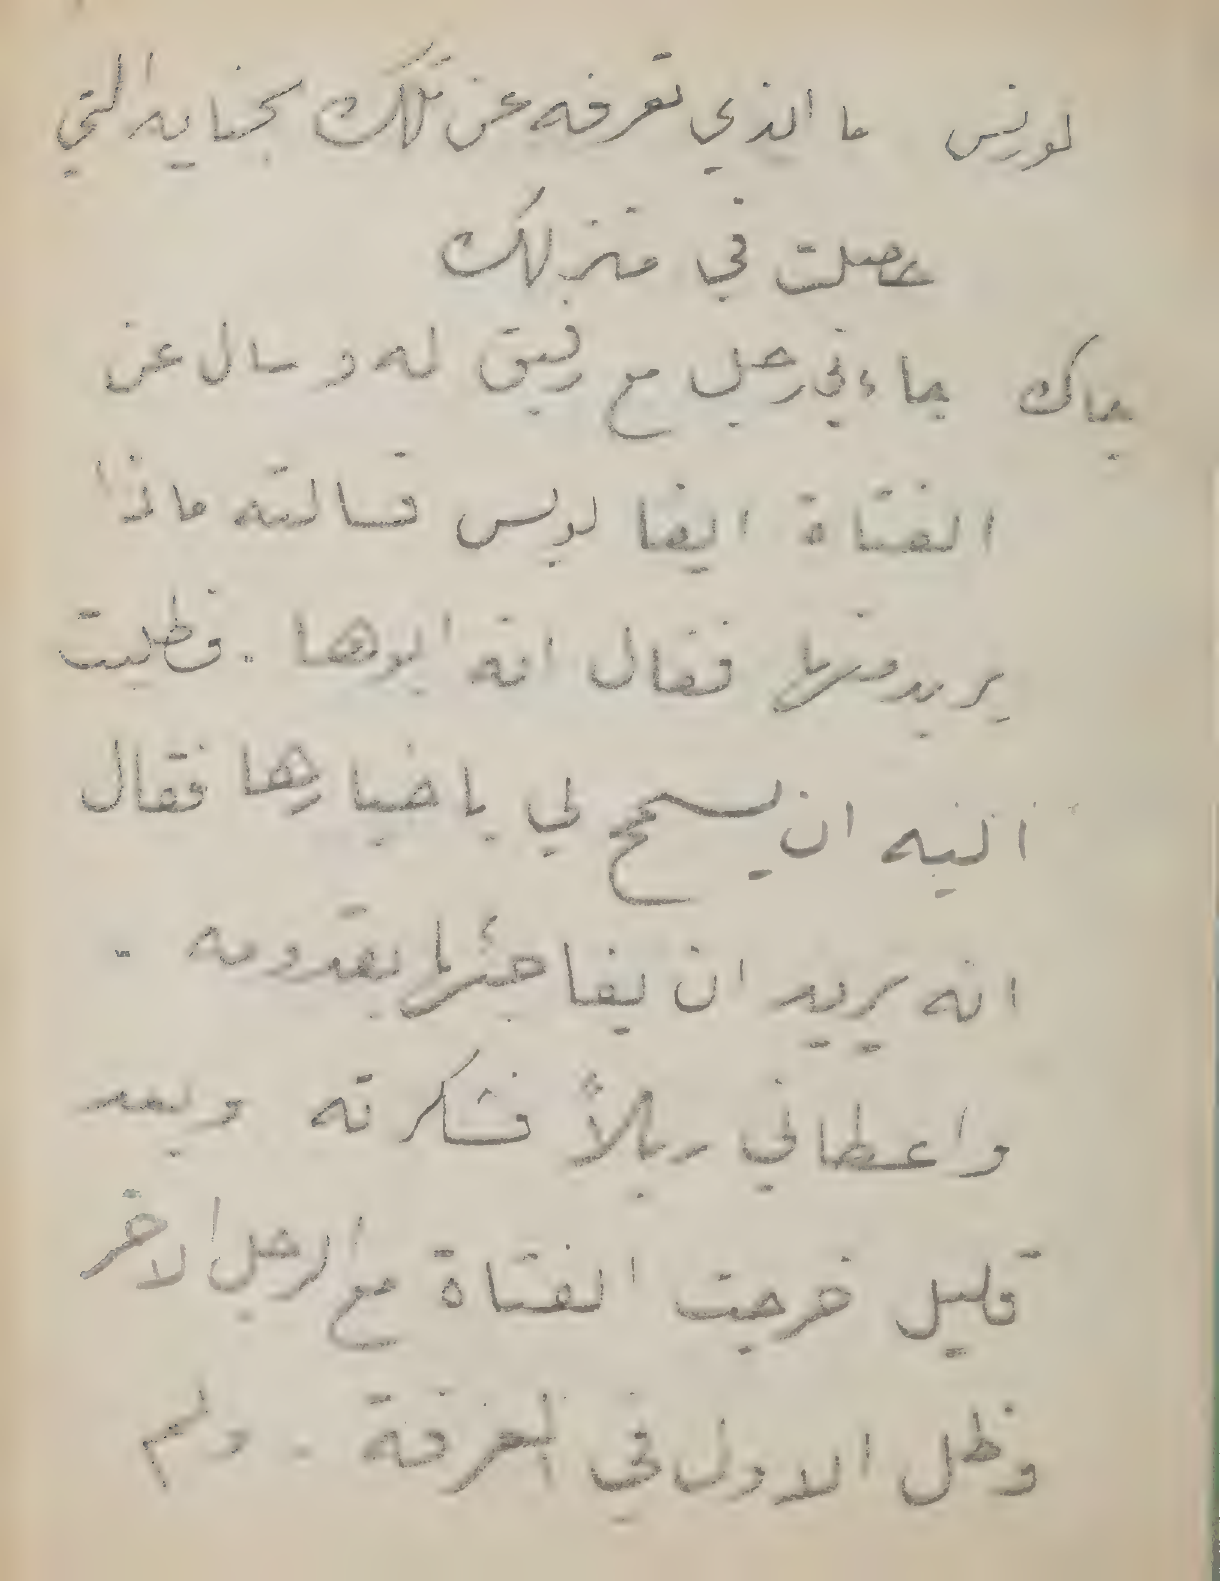 لورنس ما الذي تعرفه عن تلك الجنايه التي
حصلت في منزلك
جاك جاءني رجل مع رفيق له وسال عن
الفتاة ايفا لويس فسالته ماذا
يريد منها فقال انه ابوها . فطلبت
اليه ان يسمح لي باخبارها فقال
انه يريد ان يفاجئها بقدومه .
واعطاني ريالاً فشكرته وبعد
قليل خرجت الفتاة مع الرجل الاخر
وظل الاول في الغرفة . ولم